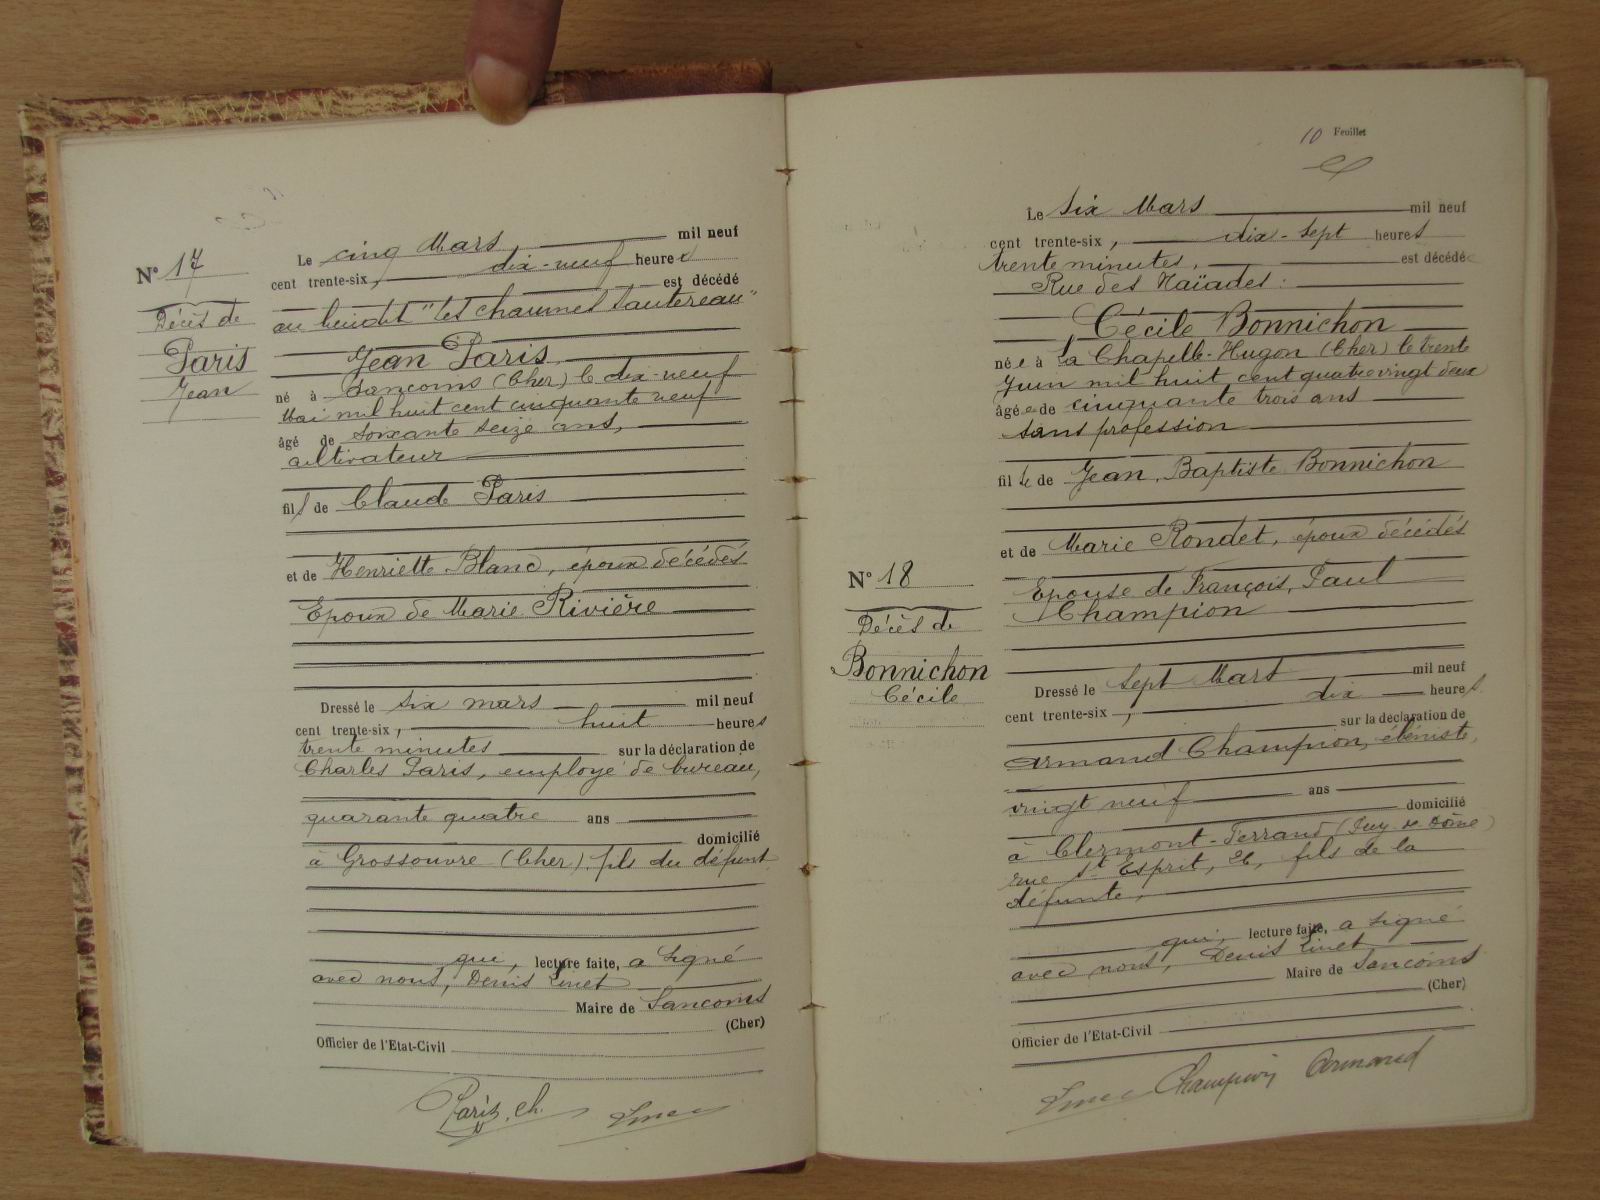 N° 17
Décès de
Paris
Jean
Le cinq Mars, mil neuf
cent trente-six, dix-neuf heures
est décédé
au lieudit "les chaumes Sautereau"
Jean Paris
né à Sancoins (Cher) le dix-neuf
Mai mil huit cent cinquante neuf
âgé de soixante seize ans,
cultivateur
fils de Claude Paris
et de Henriette Blanc, époux décédés
Epoux de Marie Rivière
Dressé le six mars mil neuf
cent trente-six, huit heures
trente minutes sur la déclaration de
Charles Paris, employé de bureau,
quarante quatre ans
domicilié
à Grossouvre (Cher). fils du défunt
qui, lecture faite, a signé
avec nous, Denis Linet
Maire de Sancoins
(Cher)
Officier de l'Etat-Civil
Paris. ch.
10 Feuillet
N° 18
Décès de
Bonnichon
Cécile
Le Six Mars mil neuf
cent trente-six, dix-sept heures
trente minutes, est décédée
Rue des Naïades.
Cécile Bonnichon
née à La Chapelle-Hugon (Cher) le trente
Juin mil huit cent quatre vingt deux
âgée de cinquante trois ans
sans profession
fille de Jean, Baptiste Bonnichon
et de Marie Rondet, époux décédés
Epouse de François, Paul
Champion
Dressé le sept Mars mil neuf
cent trente-six, dix heures
sur la déclaration de
Armand Champion, ébéniste,
vingt neuf ans
domicilié
à Clermont-Ferrand (Puy de Dôme)
rue St Esprit, 26, fils de la
défunte,
qui, lecture faite, a signé
avec nous, Denis Linet
Maire de Sancoins
(Cher)
Officier de l'Etat-Civil
Champion Armand